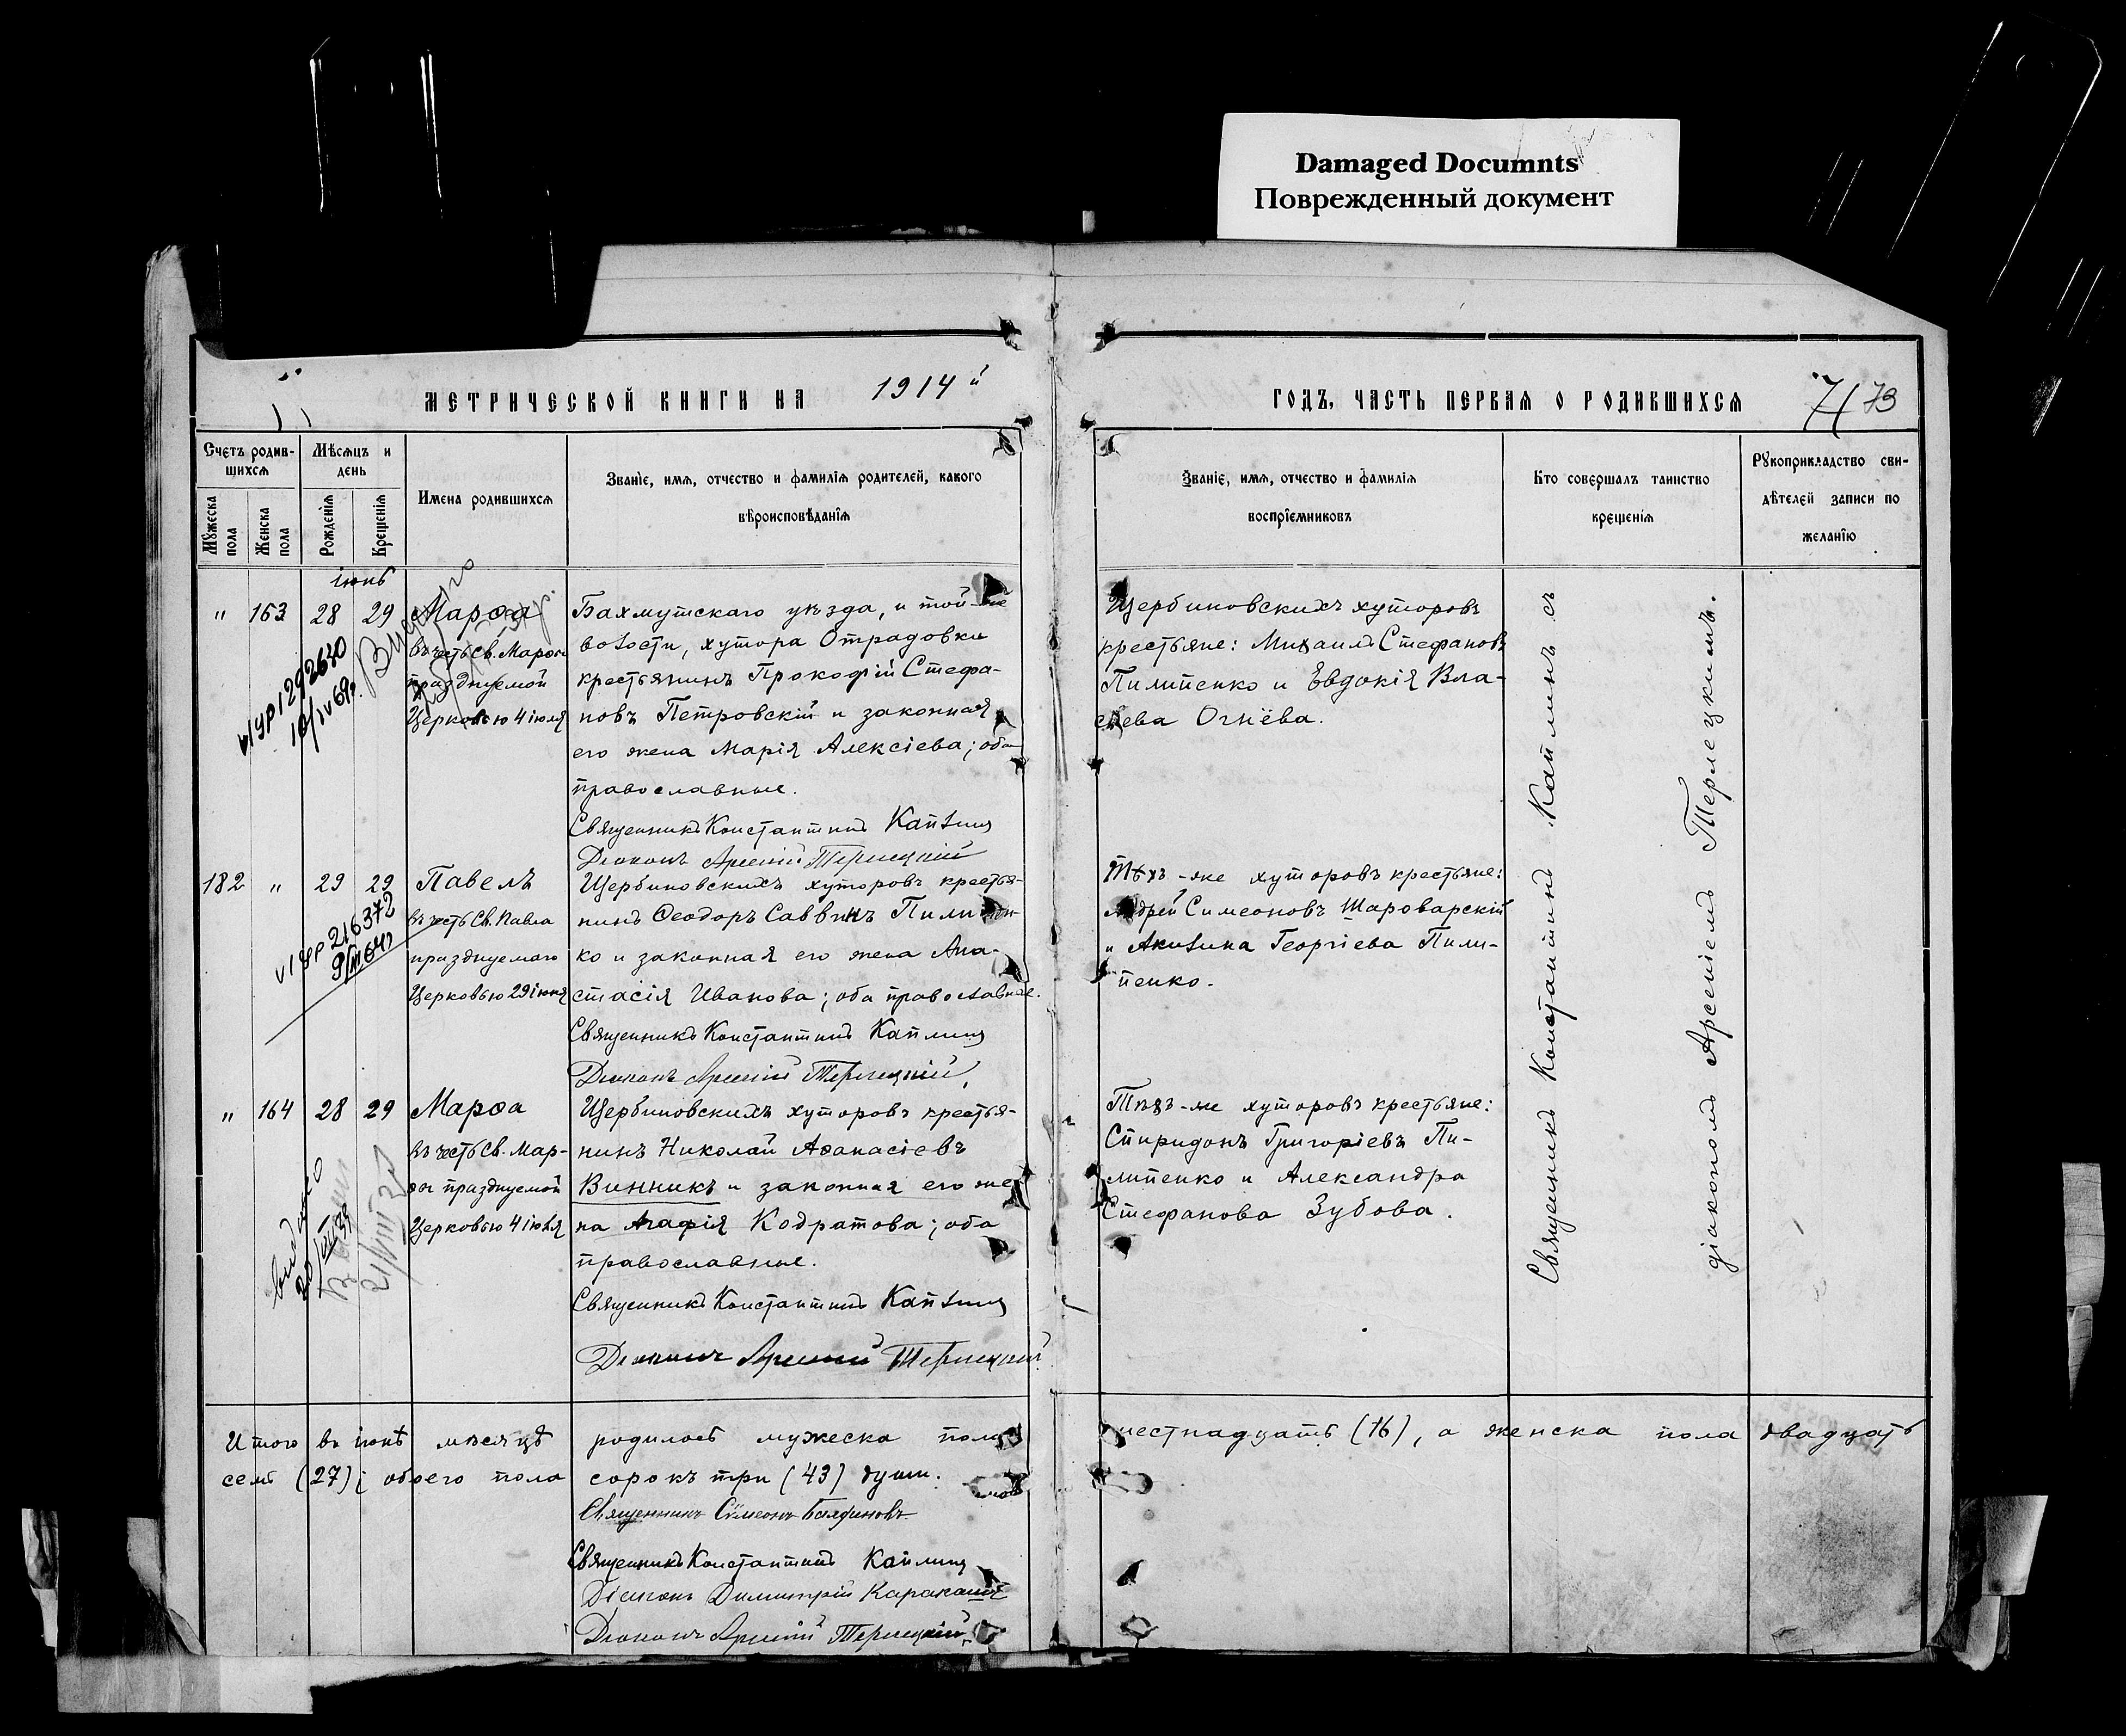 Damaged Documnts
Поврежденный документ
МЕТРИЧЕСКОЙ КНИГИ НА 1914 й
ГОДЪ, ЧАСТЬ ПЕРВАЯ О РОДИВШИХСЯ
73
Счетъ родив-
шихся
Мужеска пола
Женска пола
Мѣсяцъ и
день
Рожденія
Крещенія
Имена родившихся
Званіе, имя, отчество и фамилія родителей, какого
вѣроисповѣданія
Званіе, имя, отчество и фамилія
воспріемниковъ
Кто совершалъ таинство
крещенія
Рукоприкладство сви-
дѣтелей записи по
желанію
іюнь
" 163 28 29
Марѳа
въ честь Св. Марѳы
празднуемой
Церковью 4 іюля
Бахмутскаго уѣзда, и той-же
волости, хутора Отрадовки
крестьянинъ Прокофій Стефа-
новъ Петровскій и законная
его жена Марія Алексіева; оба
православные.
Священникъ Константинъ Каплинъ
Діаконъ Арсеній Терлецкій
Щербиновскихъ хуторовъ
крестьяне: Михаилъ Стефановъ
Пилипенко и Евдокія Вла-
сіева Огнёва.
182 " 29 29
Павелъ
въ честь Св. Павла
празднуемаго
Церковью 29 іюня
216372
Щербиновскихъ хуторовъ крестья-
нинъ Ѳеодоръ Саввинъ Пилипен-
ко и законная его жена Ана-
стасія Иванова; оба православные.
Священникъ Константинъ Каплинъ
Діаконъ Арсеній Терлецкій
Тѣхъ-же хуторовъ крестьяне:
Андрей Симеоновъ Шароварскій
и Акилина Георгіева Пили-
пенко.
" 164 28 29
Марѳа
въ честь Св. Мар-
ѳы празднуемой
Церковью 4 іюля
Щербиновскихъ хуторовъ крестья-
нинъ Николай Аѳанасіевъ
Винникъ и законная его же-
на Агафія Кодратова; оба
православные.
Священникъ Константинъ Каплинъ
Діаконъ Арсеній Терлецкій
Тѣхъ-же хуторовъ крестьяне:
Спиридонъ Григоріевъ Пи-
липенко и Александра
Стефанова Зубова.
Священникъ Константинъ Каплинъ съ
діакономъ Арсеніемъ Терлецкимъ.
Итого въ іюнѣ мѣсяцѣ родилось мужеска пола шестнадцать (16), а женска пола двадцать
семь (27); обоего пола сорокъ три (43) души.
Священникъ Сѵмеонъ
Священникъ Константинъ Каплинъ
Діаконъ Димитрій
Діаконъ Арсеній Терлецкій